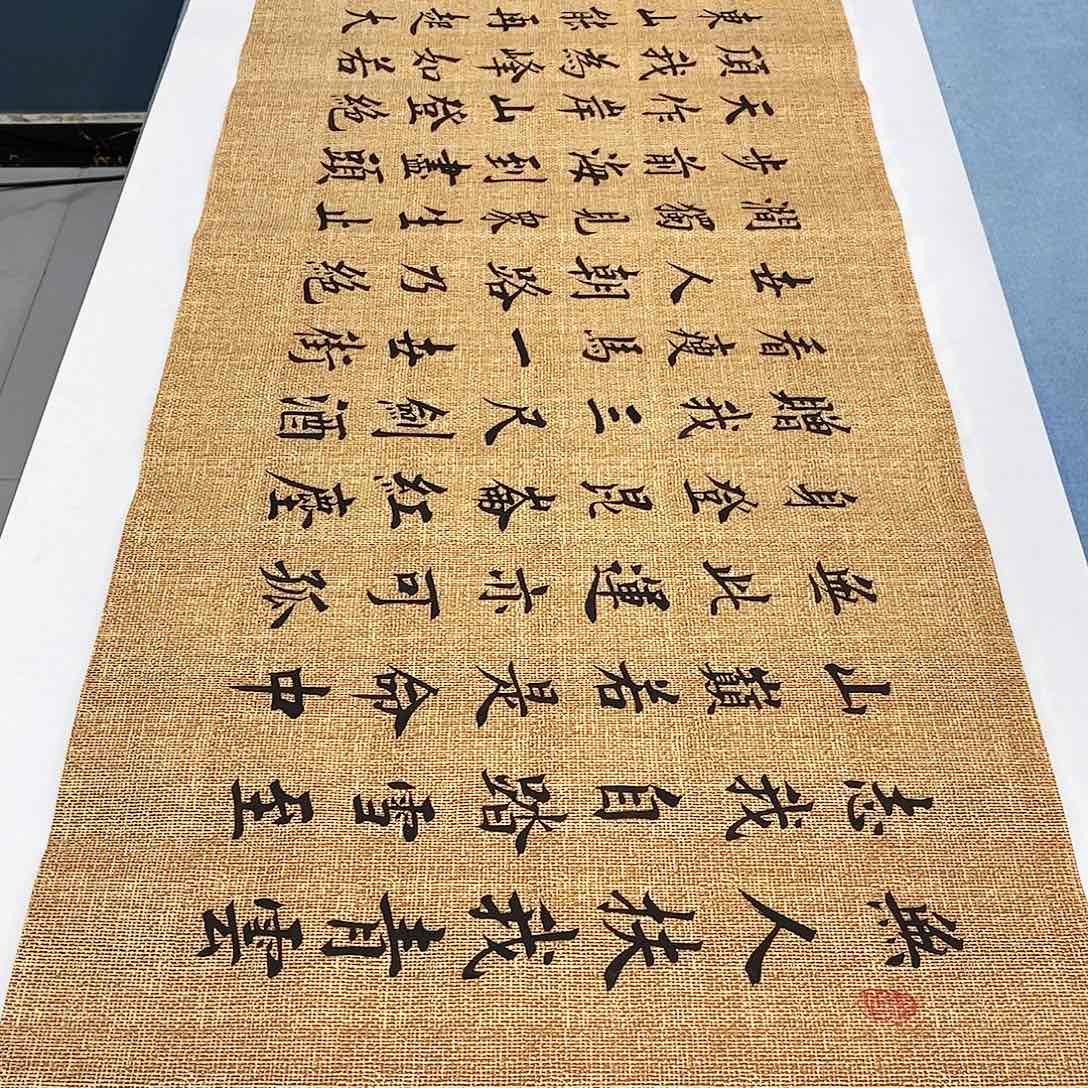 無人扶我青雲
志我自踏雪至
山巔若是命中
無此運亦可孤
身登昆崙紅塵
贈我三尺劍酒
看瘦馬一世街
世人朝路乃絕
澗獨見眾生止
步前海到盡頭
天作岸山登絕
頂我為峰如若
東山能再起大